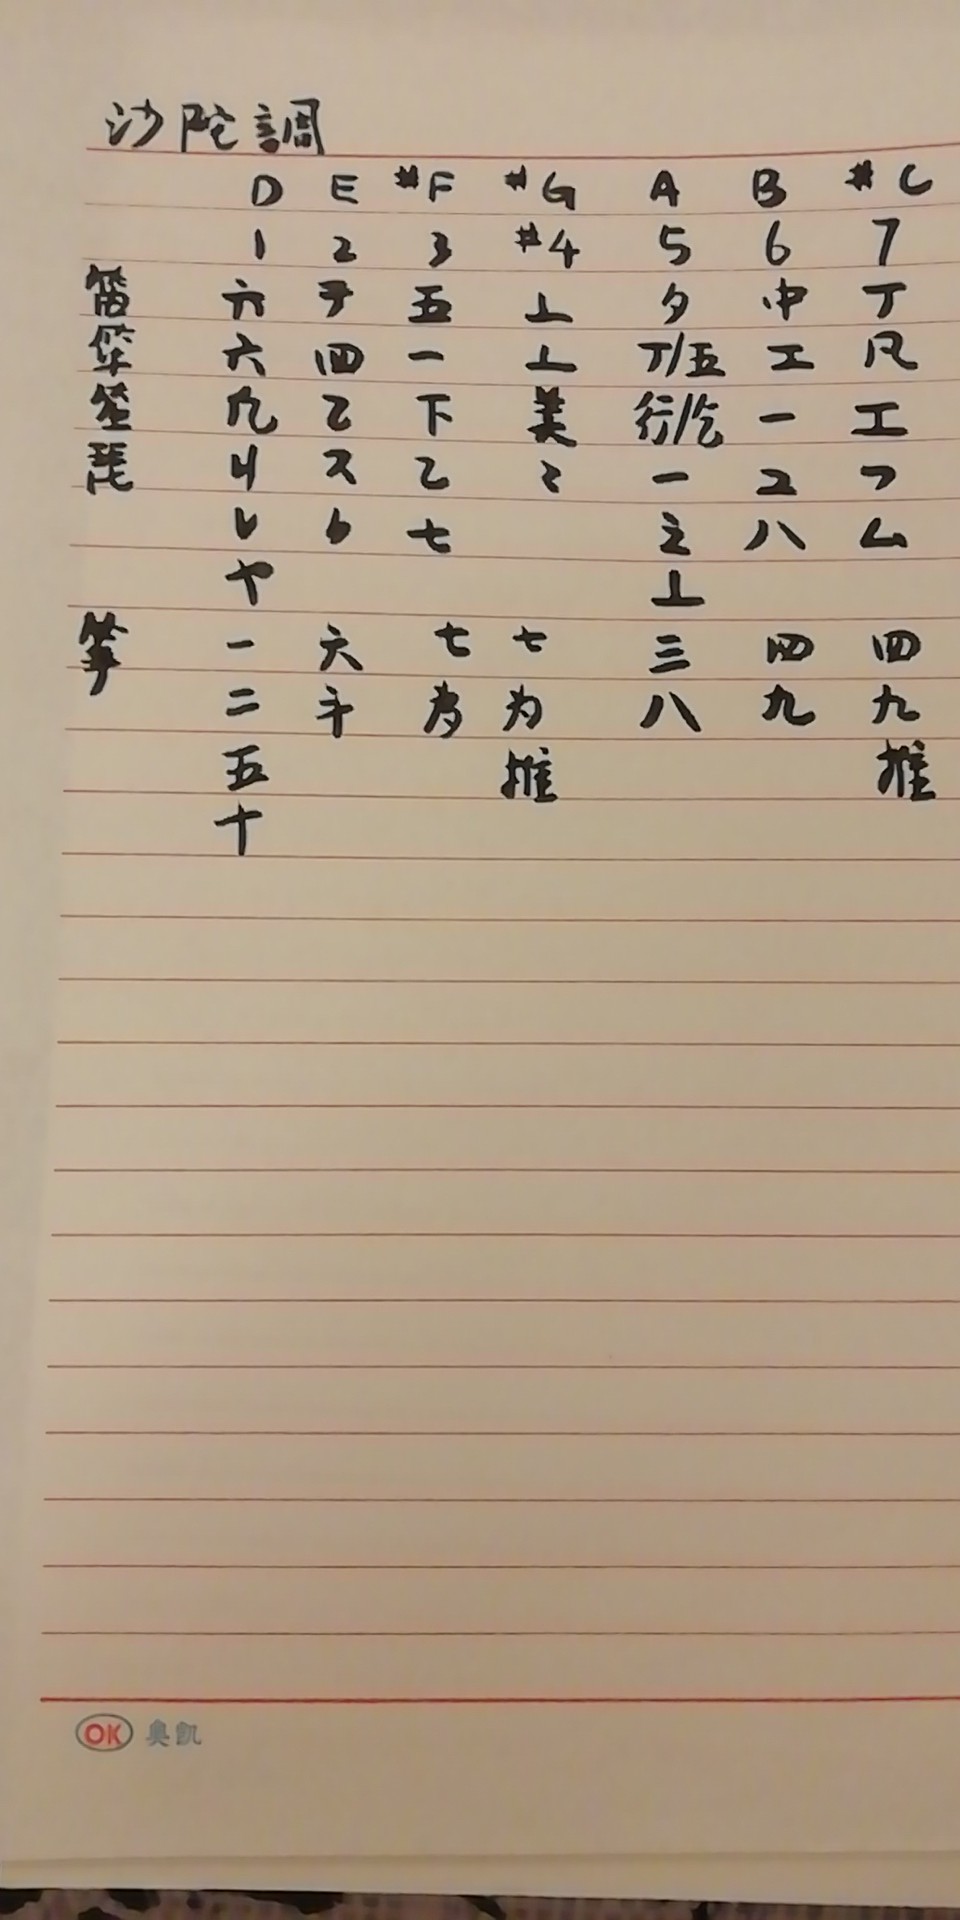 沙陀調
D E #F #G A B #C
1 2 3 #4 5 6 7
笛 六 于 五 ㄥ 夕 中 丁
六 四 一 ㄥ 丁/五 工 凡
笙 乙 下 美 行/乞 一 工
琵 リ ス 乙 〻 一 ユ フ
レ 七 之 八 ム
ヤ 丄
箏 一 六 七 七 三 四 四
二 斗 為 为 八 九 九
五 推 推
十
OK 奥凯